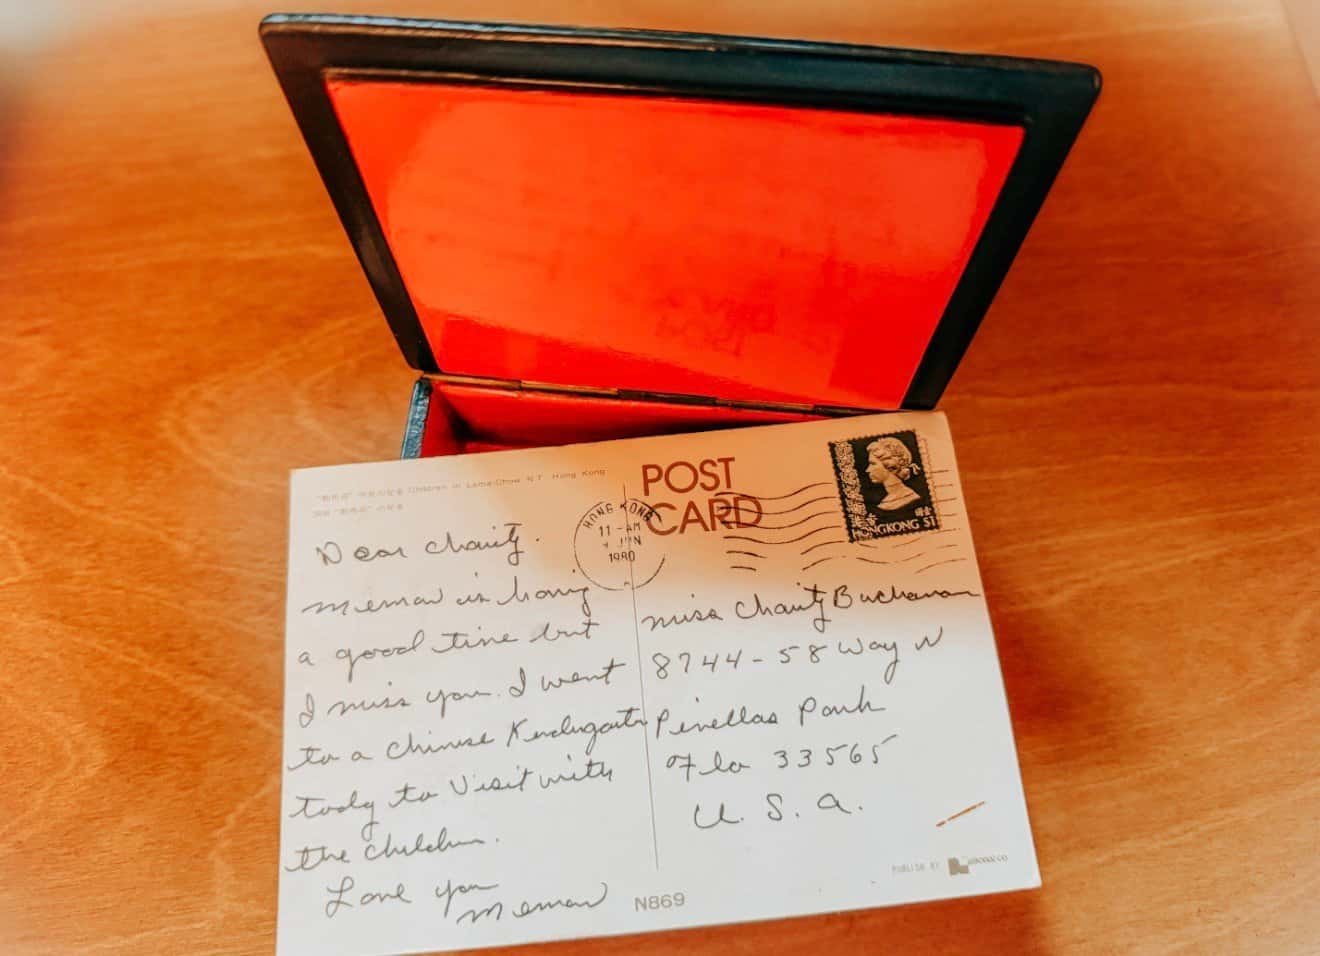 Children in Lama-Chow N.T. Hong Kong
POST
CARD
HONG KONG
11 -AM
JUN
1980
HONGKONG $1
Dear Charity.
Memaw is having
a good time but
I miss you. I went
to a Chinese Kindergarten
today to Visit with
the Children.
Love you
Memaw
Miss Charity Buchanan
8744-58 Way N
Pinellas Park
Fla 33565
U. S. A.
N869
PUBLISH BY